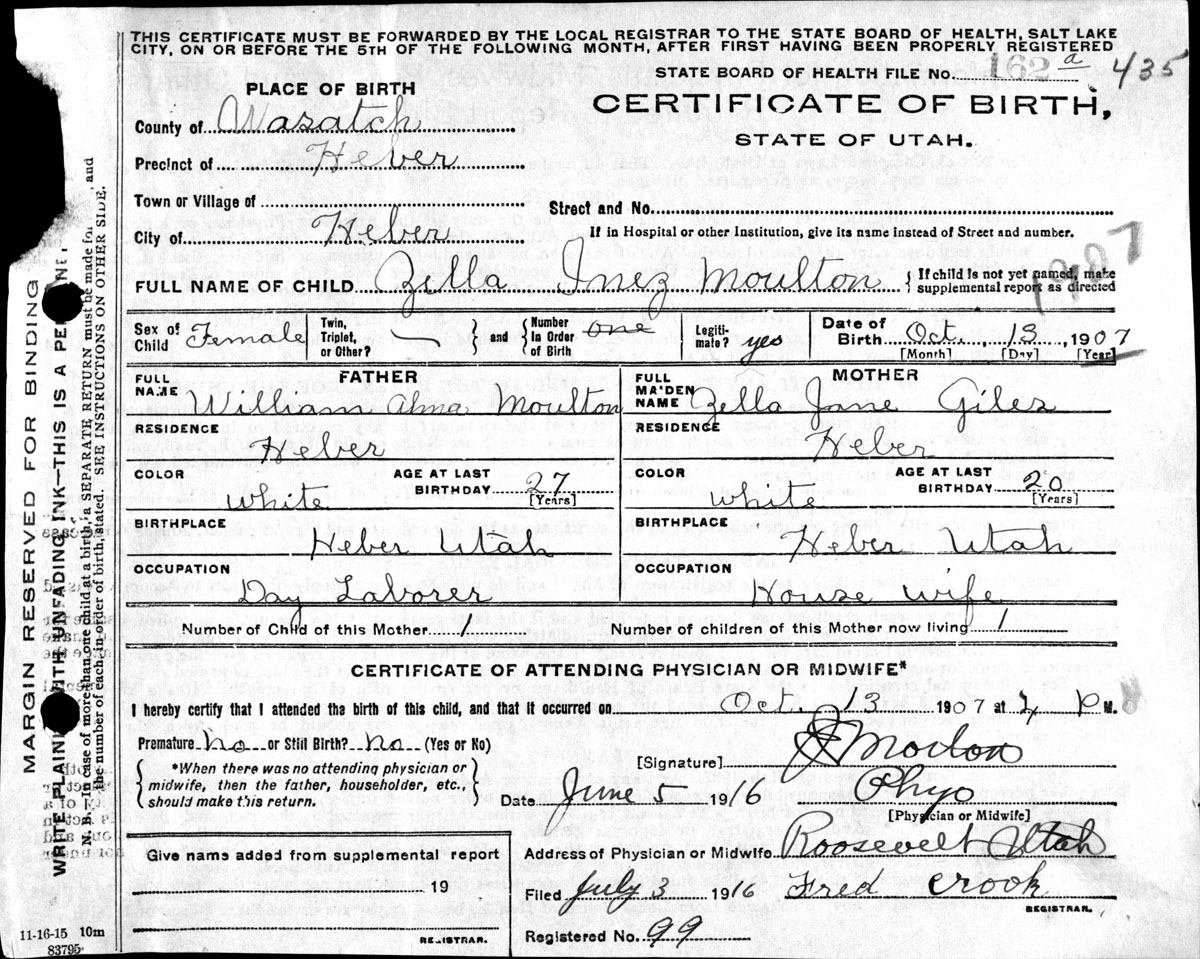 THIS CERTIFICATE MUST BE FORWARDED BY THE LOCAL REGISTRAR TO THE STATE BOARD OF HEALTH, SALT LAKE
CITY, ON OR BEFORE THE 5TH OF THE FOLLOWING MONTH, AFTER FIRST HAVING BEEN PROPERLY REGISTERED
STATE BOARD OF HEALTH FILE No. 162 a 435
PLACE OF BIRTH
CERTIFICATE OF BIRTH,
STATE OF UTAH.
County of Wasatch
Precinct of Heber
Town or Village of
Street and No.
City of Heber
If in Hospital or other Institution, give its name instead of Street and number.
1907
FULL NAME OF CHILD Zella Inez Moulton
If child is not yet named, make
supplemental report as directed
Sex of Child Female
Twin, Triplet, or Other? —
and Number In Order of Birth one
Legiti-mate? yes
Date of Birth Oct. , 13 , 1907
[Month] [Day] [Year]
FATHER
FULL NAME William Alma Moulton
MOTHER
FULL MAIDEN NAME Zella Jane Giles
RESIDENCE Heber
RESIDENCE Heber
COLOR White
AGE AT LAST BIRTHDAY 27 [Years]
COLOR White
AGE AT LAST BIRTHDAY 20 [Years]
BIRTHPLACE Heber Utah
BIRTHPLACE Heber Utah
OCCUPATION Day Laborer
OCCUPATION House wife
Number of Child of this Mother 1
Number of children of this Mother now living 1
CERTIFICATE OF ATTENDING PHYSICIAN OR MIDWIFE*
I hereby certify that I attended the birth of this child, and that it occurred on Oct. 13 1907 at 4 P M.
Premature No or Still Birth? No (Yes or No)
*When there was no attending physician or
midwife, then the father, householder, etc.,
should make this return.
[Signature]
Date June 5 1916 Phys
[Physician or Midwife]
Give name added from supplemental report
19
REGISTRAR.
Address of Physician or Midwife Roosevelt Utah
Filed July 3 1916 Fred Crook
REGISTRAR.
Registered No. 99
11-16-15 10m
83795
MARGIN RESERVED FOR BINDING
WRITE PLAINLY WITH UNFADING INK—THIS IS A
N. B.—In case of more than one child at a birth, a SEPARATE RETURN must be made for , and
the number of each, in order of birth, stated. SEE INSTRUCTIONS ON OTHER SIDE.